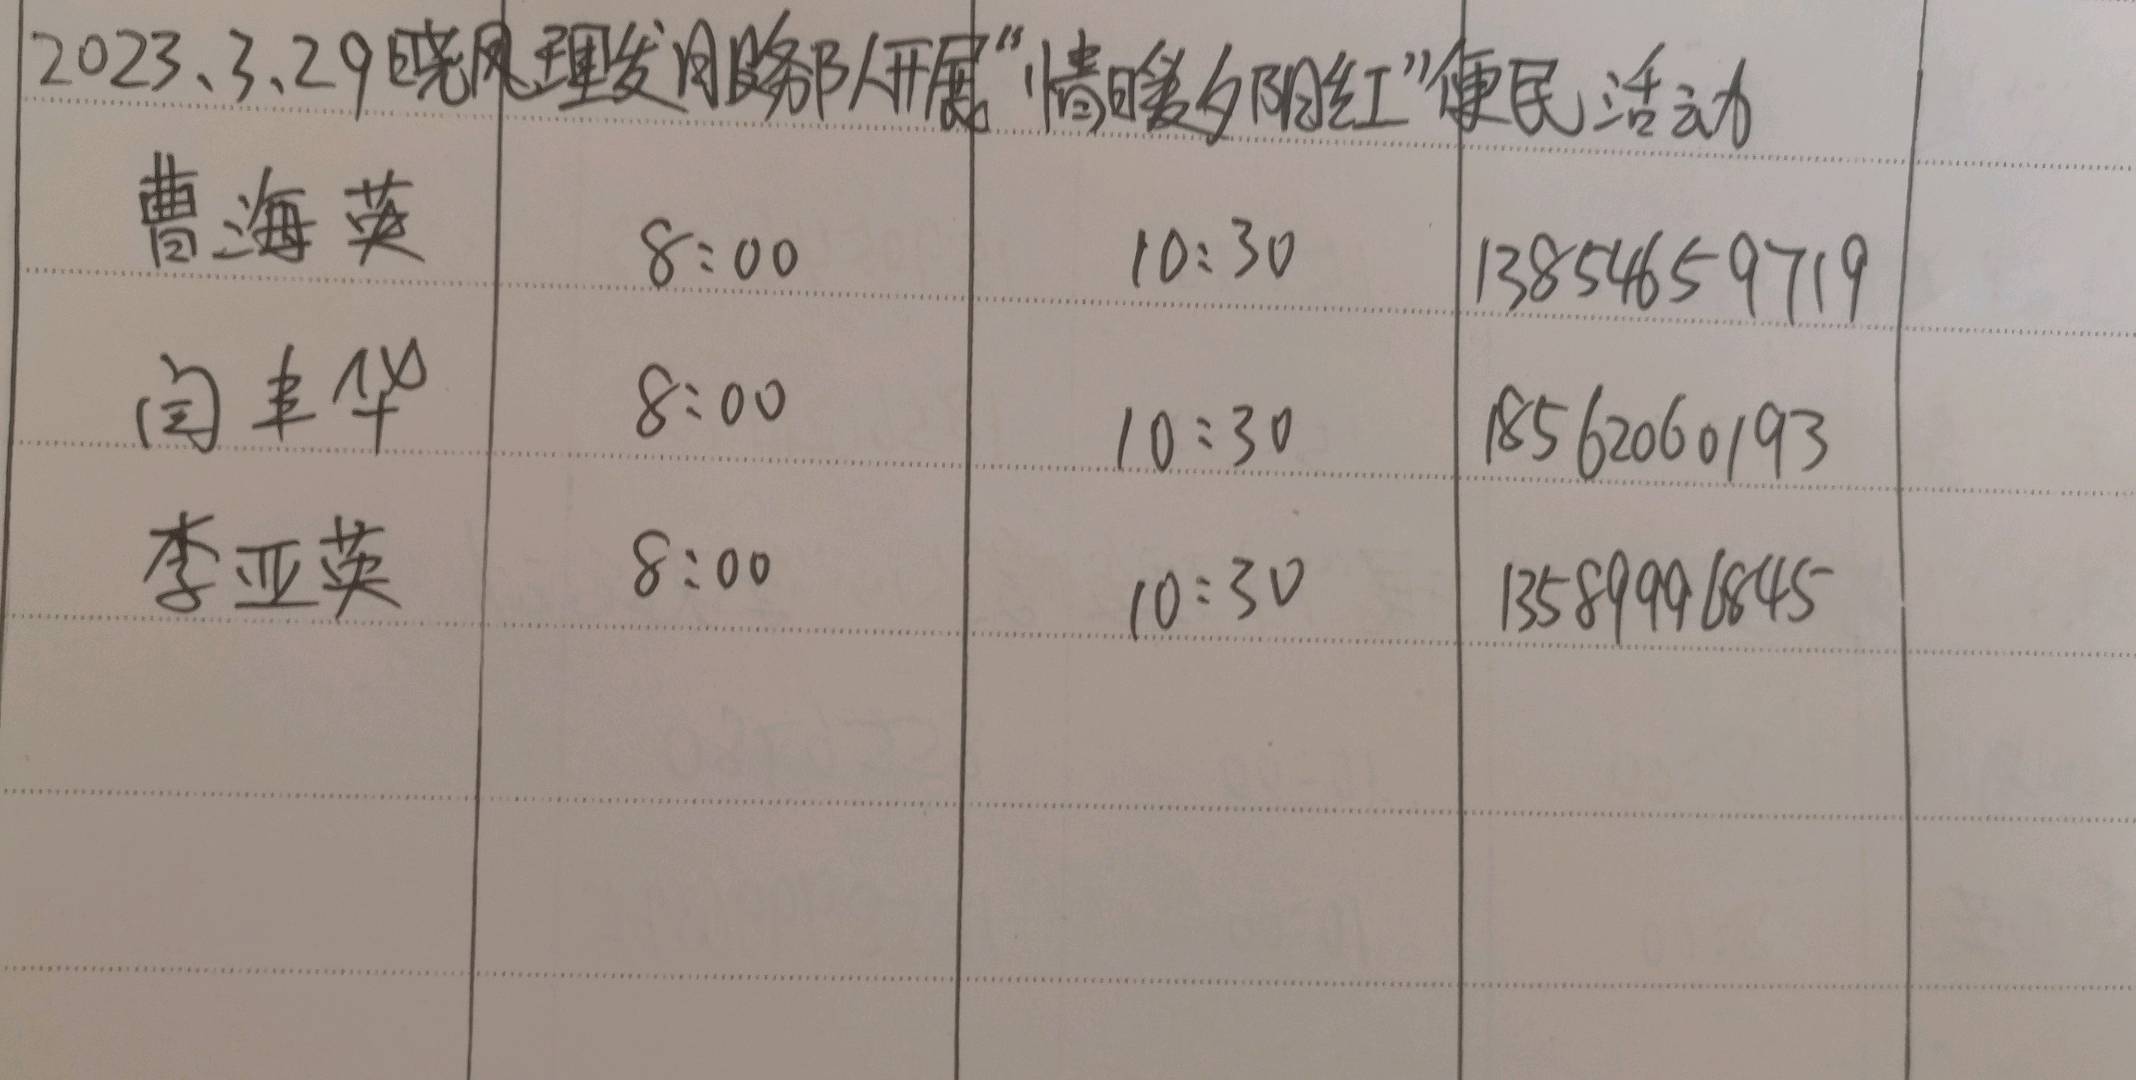 2023、3、29晓风理发服务队开展“情暖夕阳红”便民活动
曹海英 8:00 10:30 13854659719
闫丰华 8:00 10:30 18562060193
李亚英 8:00 10:30 13589996845